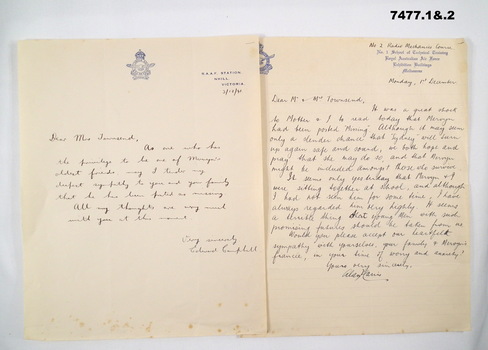 7477.1&2
R.A.A.F. STATION
NHILL
VICTORIA
Dear Mrs Townsend,
As one who has
the privilege to be one of Mervyn's
oldest friends may I tender my
deepest sympathy to you and your family
that he has been posted as missing
All my thoughts are very much
with you at this moment
Very sincerely
Edward Campbell
No 2 Radio Mechanics Course
No. 1 School of Technical Training
Royal Australian Air Force
Exhibition Buildings
Melbourne
Monday, 1st December
Dear Mr & Mrs Townsend,
It was a great shock
to Mother & I to read today that Mervyn
had been posted Missing. Although it may seem
only a slender chance that 'Sydney' will turn
up again safe and sound, we both hope and
pray that she may do so, and that Mervyn
might be included amongst those who survive.
It seems only yesterday that Mervyn & I
were sitting together at school, and although
I had not seen him for some time, I have
always regarded him very highly. It seems
a terrible thing that young men with such
promising futures should be taken from us
Would you please accept our heartfelt
sympathy with yourselves, your family & Mervyn's
fiancée, in your time of worry and anxiety?
Yours very sincerely,